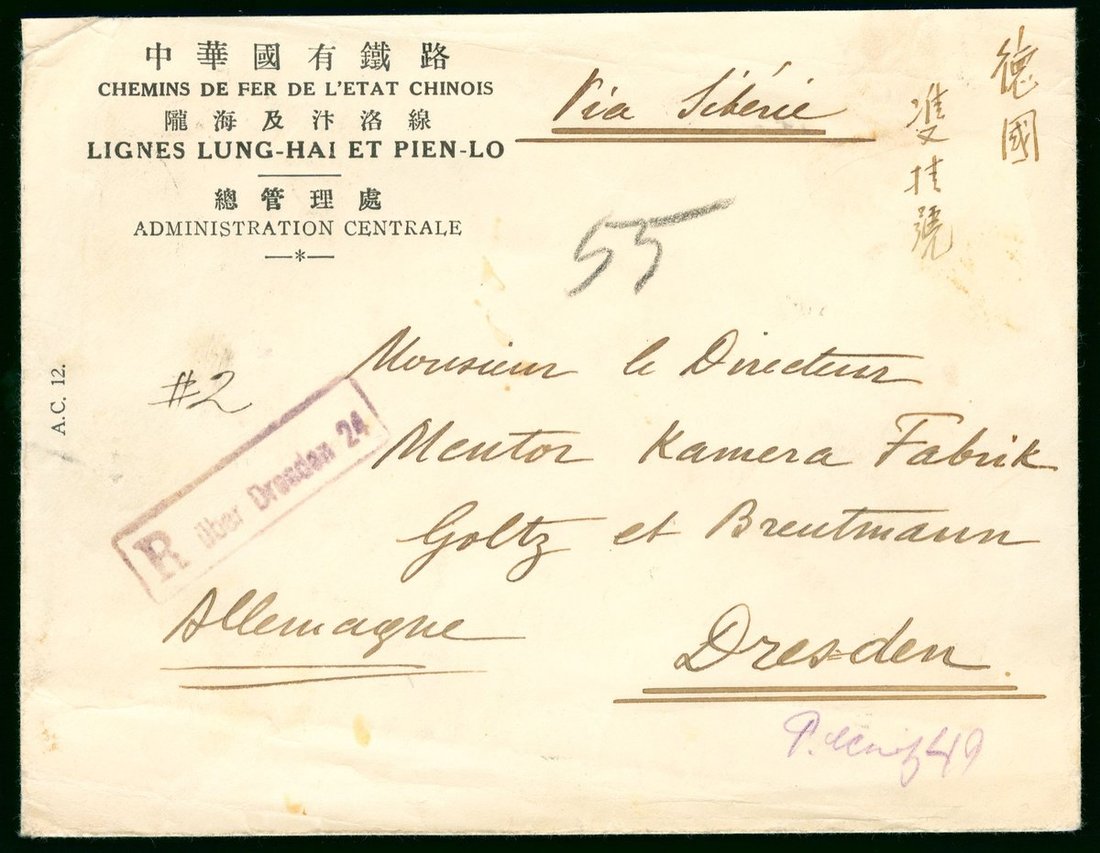 中華國有鐵路
CHEMINS DE FER DE L'ETAT CHINOIS
隴海及汴洛線
LIGNES LUNG-HAI ET PIEN-LO
總管理處
ADMINISTRATION CENTRALE
Via Sibérie
德國
雙挂號
55
A.C. 12.
#2
R über Dresden 24
Monsieur le Directeur
Mentor Kamera Fabrik
Goltz et Breutmann
Allemagne
Dresden.